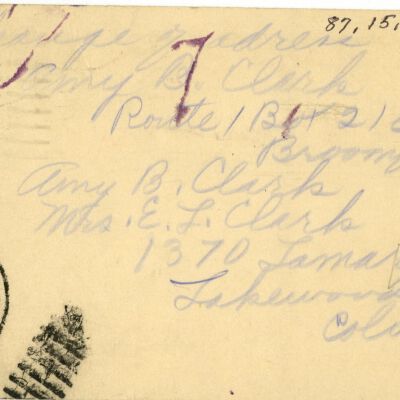 87, 15,
address
Amy B. Clark
Route 1 Box 216
Broom
Amy B. Clark
Mrs. E. L. Clark
1370 Lamar
Lakewood
Colo
7